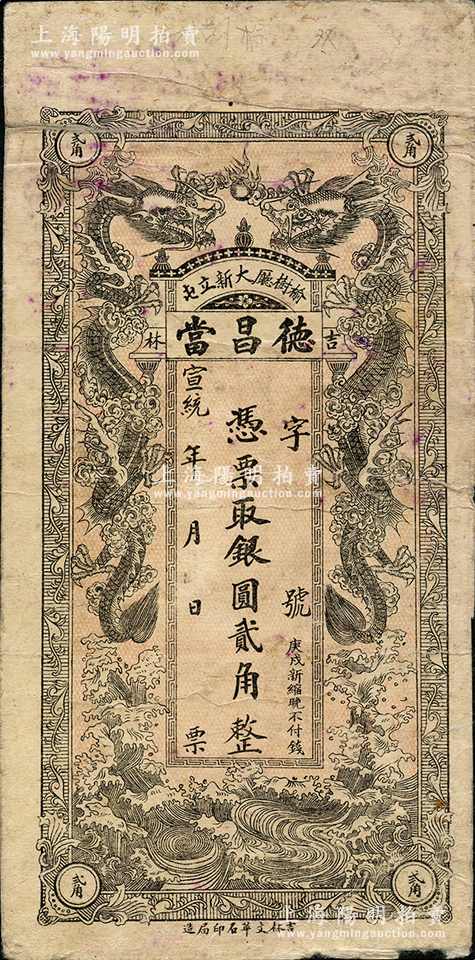 上海陽明拍賣
www.yangmingauction.com
貳角
貳角
榆樹廳大新立屯
吉林
德昌當
字 號
庚戌新縮號不付錢
憑票取銀圓貳角整
宣統 年 月 日 票
上海陽明拍賣
www.yangmingauction.com
貳角
貳角
吉林文華石印局造
上海陽明拍賣
www.yangmingauction.com